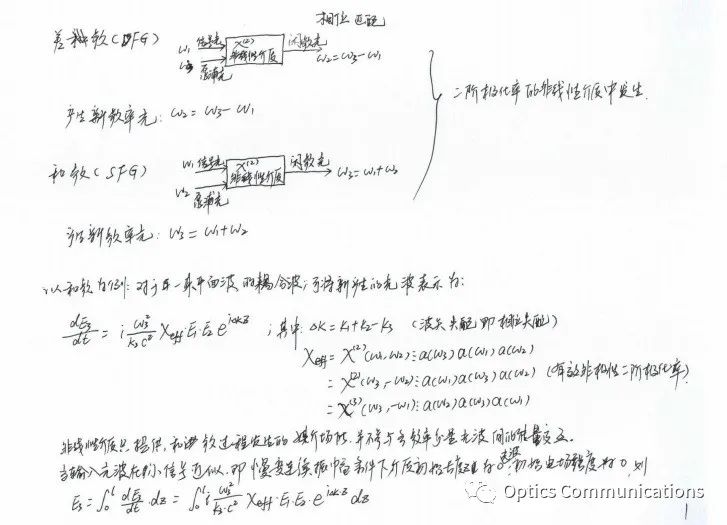 相位匹配
差频(DFG)
ω₁ 信号光
ω₃ 泵浦光
χ⁽²⁾
非线性介质
闲频光
ω₂=ω₃-ω₁
产生新频率光: ω₂=ω₃-ω₁
二阶极化率的非线性介质中发生.
和频(SFG)
ω₁ 信号光
ω₂ 泵浦光
χ⁽²⁾
非线性介质
闲频光
ω₃=ω₁+ω₂
产生新频率光: ω₃=ω₁+ω₂
以和频为例: 对于单一束平面波的耦合波, 可将新产生的光波表示为:
dE₃/dt = i ω₃²/(k₃c²) χeff·E₁·E₂ e^{iΔkz} ; 其中: Δk=k₁+k₂-k₃ (波矢失配即相位失配)
χeff = χ⁽²⁾(ω₁,ω₂)⋮a(ω₃)a(ω₁)a(ω₂)
= χ⁽²⁾(ω₃,-ω₂)⋮a(ω₁)a(ω₃)a(ω₂) (有效非线性二阶极化率)
= χ⁽³⁾(ω₃,-ω₁)⋮a(ω₂)a(ω₃)a(ω₁)
非线性介质只提供和频过程发生的媒介场所, 并不参与各频率分量光波间的能量交互.
当输入光波在小信号近似, 即慢变连续振幅条件下介质初始 初始电场强度为0, 则
E₃ = ∫₀ᴸ dE₃/dt · dz = ∫₀ᴸ i ω₃²/(k₃·c²) χeff·E₁·E₂·e^{iΔkz} dz
Optics Communications
1